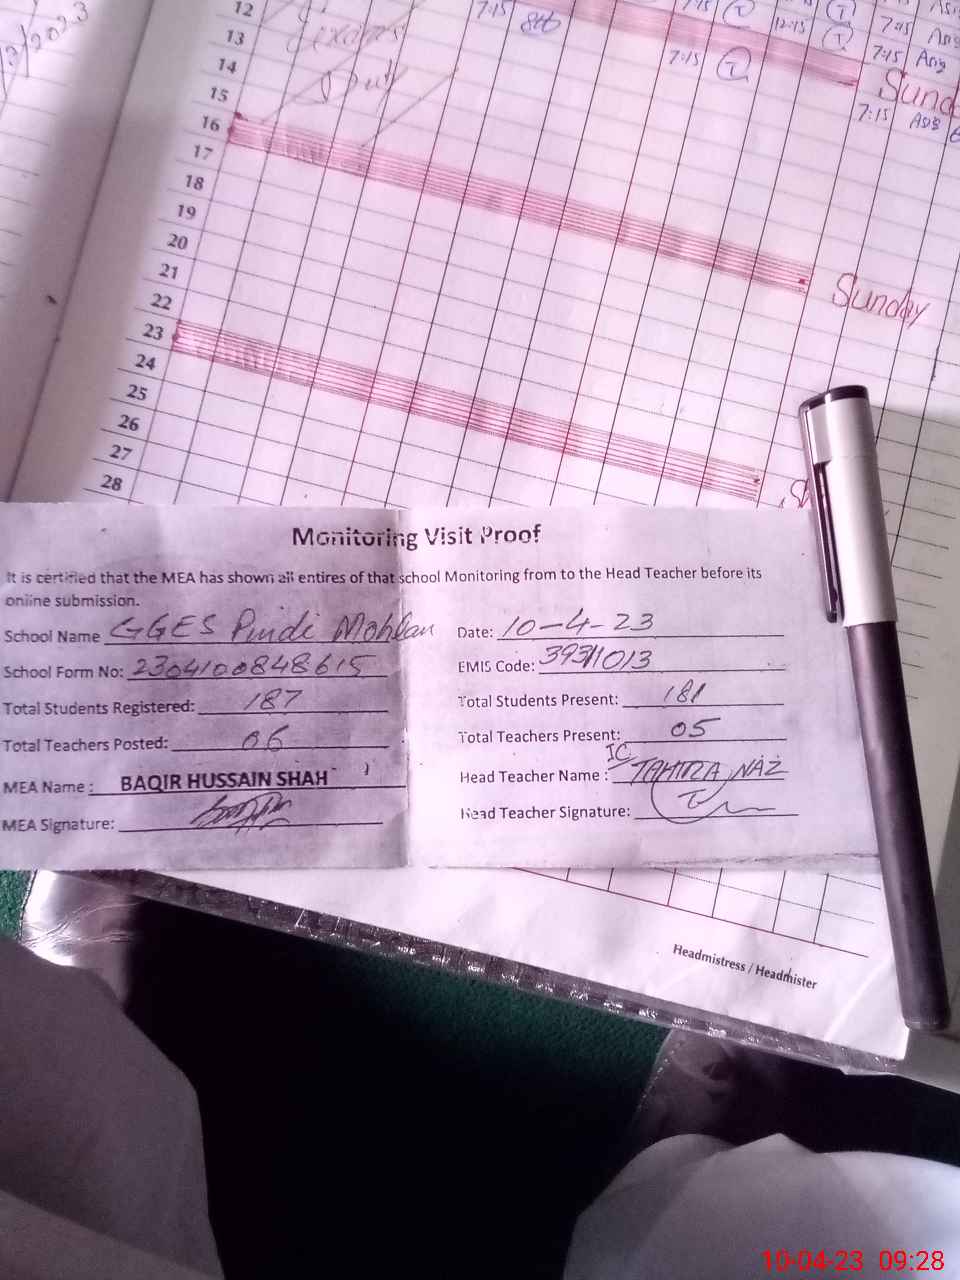 12
13
14
15
16
17
18
19
20
21
22
23
24
25
26
27
28
exams
Duty
7:15
7:15
12:15
7:15
7:15 Asg
7:15
Sunday
Monitoring Visit Proof
It is certified that the MEA has shown all entires of that school Monitoring from to the Head Teacher before its
online submission.
School Name GGES Pindi Mohlan
School Form No: 2304100848615
Total Students Registered: 187
Total Teachers Posted: 06
MEA Name: BAQIR HUSSAIN SHAH
MEA Signature:
Date: 10-4-23
EMIS Code: 39311013
Total Students Present: 181
Total Teachers Present: 05
Head Teacher Name: IC TAHIRA NAZ
Head Teacher Signature:
Headmistress / Headmister
10-04-23 09:28